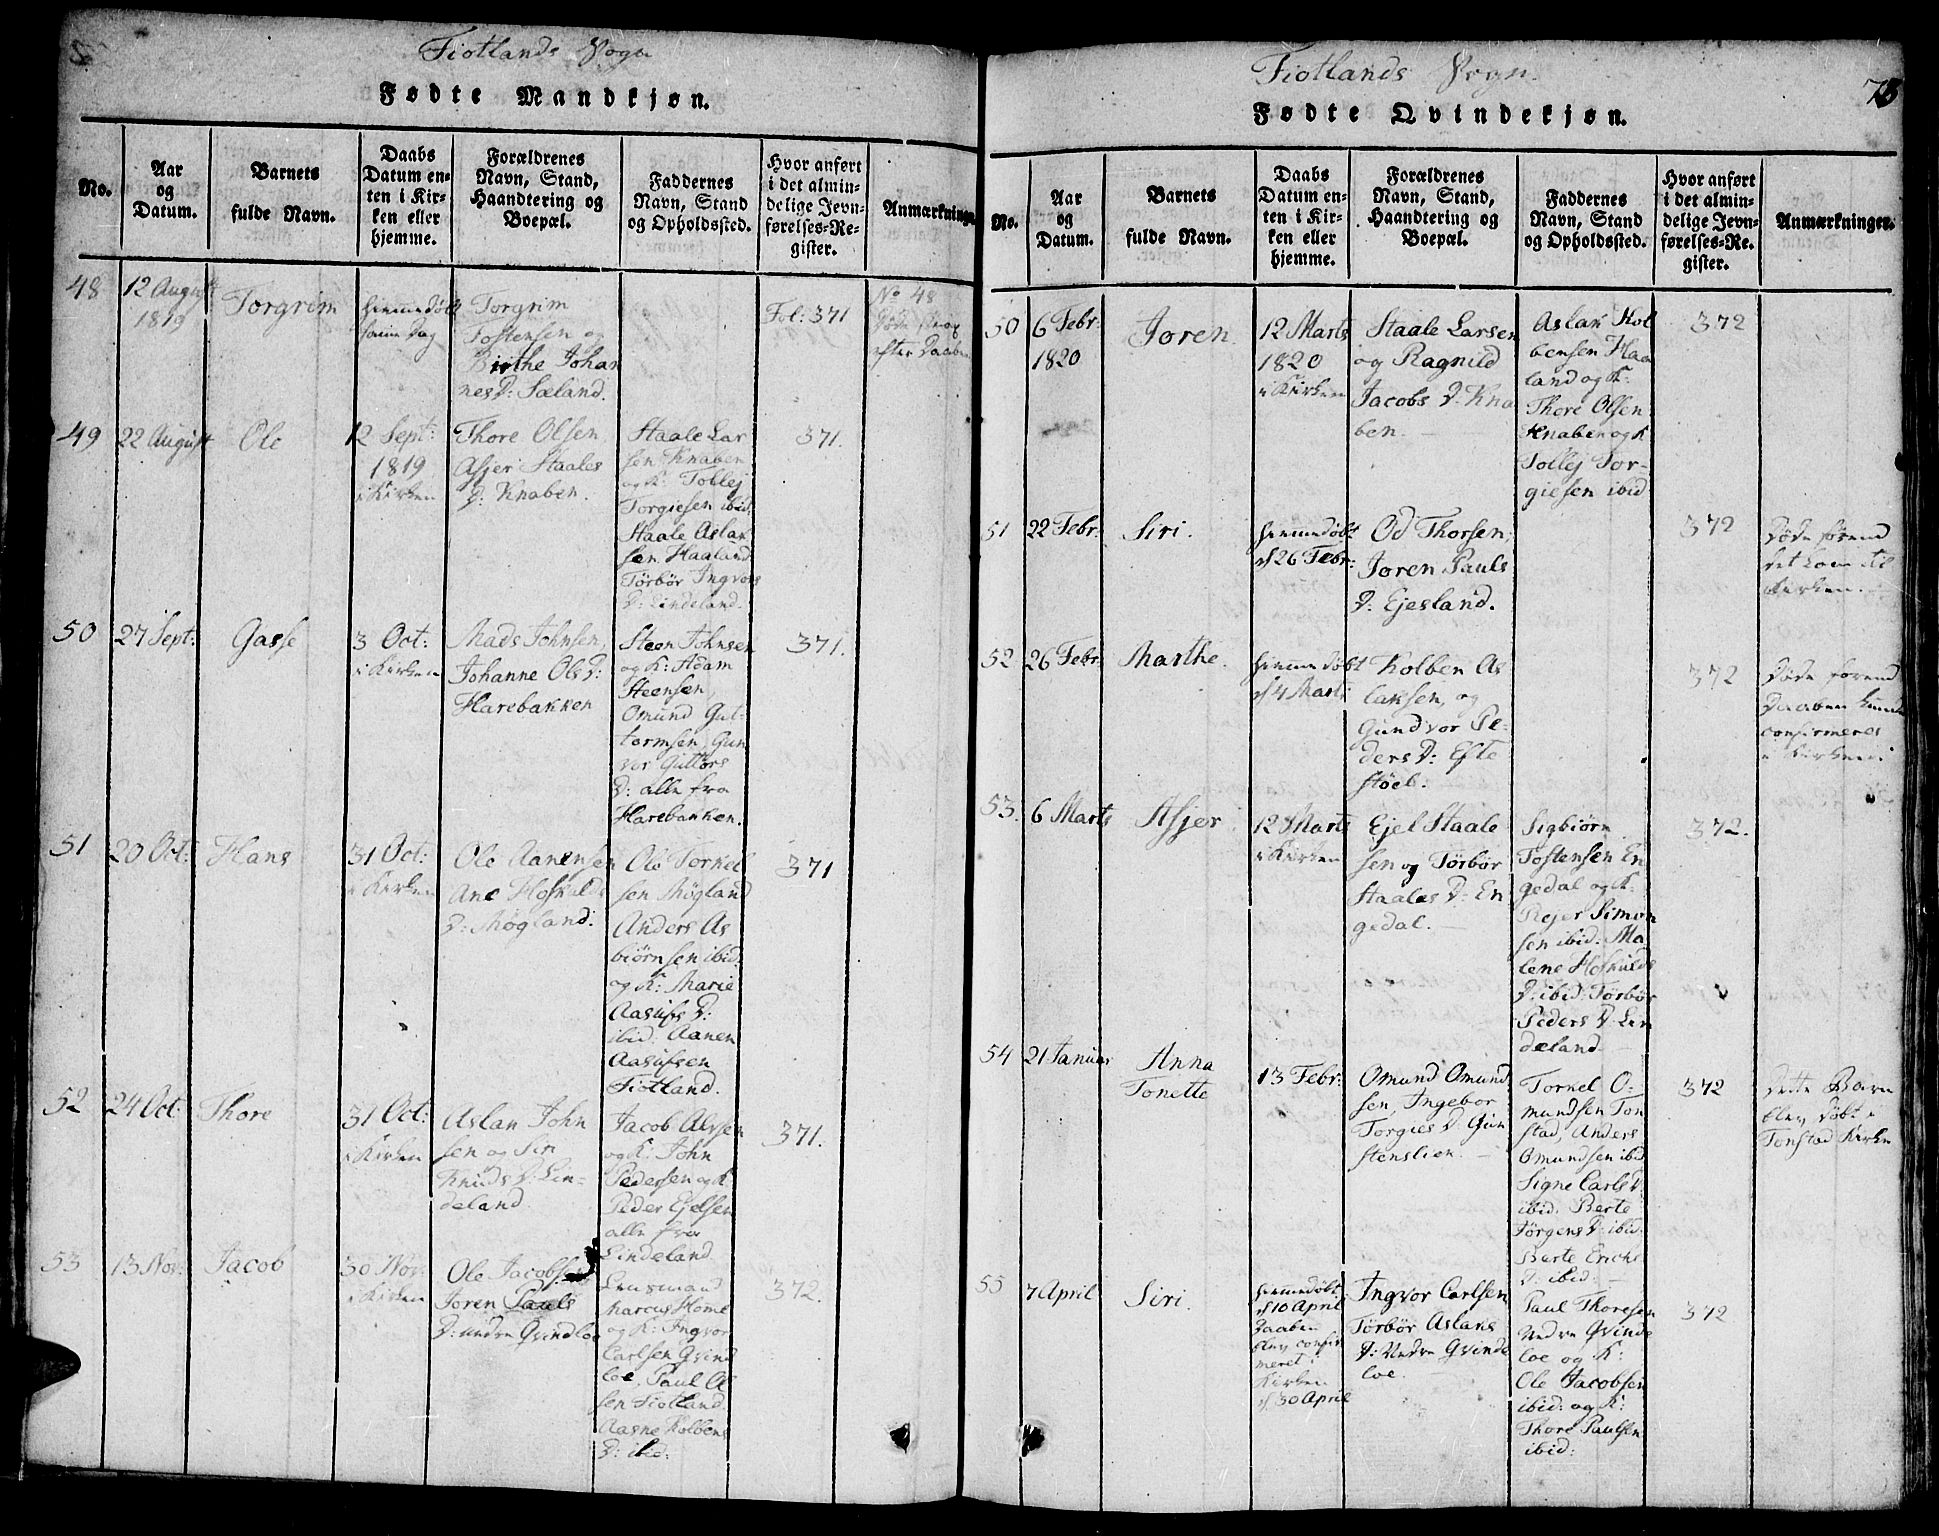 Fiotlands Sogn
Fødte Mandkjøn.
No.
Aar
og
Datum.
Barnets
fulde Navn.
Daabs
Datum en-
ten i Kir-
ken eller
hjemme.
Forældrenes
Navn, Stand,
Haandtering og
Boepæl.
Faddernes
Navn, Stand
og Opholdssted.
Hvor anført
i det almin-
delige Jevn-
førelses-Re-
gister.
Anmærkninge
48
12 August
1819
Torgrim
hiemmedøbt
samme Dag
Torgrim
Tostensen og
Birthe Johan
nes D: Sæland.
Fol: 371
No 48
Døde strax
efter Daaben
49
22 August
Ole
12 Sept:
1819
i Kirken
Thore Olsen,
Asjer Staales
D: Knaben.
Staale Lar
sen Knaben
og K: Tollej
Torgiesen ibid:
Staale Aslak
sen Haaland
Törbör Ingvors
D: Lindeland.
371.
50
27 Sept:
Gasse
3 Oct:
i Kirken
Mads Johnsen,
Johanne Ols D:
Harebakken
Steen Johnsen
og K: Adam
Steensen,
Omund Gut-
tormsen, Gun
vor Guttors
D: alle fra
Harebakken.
371.
51
20 Oct:
Hans
31 Oct:
i Kirken
Ole Aanensen
Ane Hoskulds
D: Møgland.
Ole Torkel
sen Møgland
Anders As
biørnsen ibid:
og K: Marie
Aasulfs D:
ibid: Aanen
Aasulfsen
Fiotland.
371
52
24 Oct:
Thore
31 Oct:
i Kirken
Aslan John
sen og Siri
Knuds D: Lin-
deland
Jacob Alvsen
og K: John
Pedersen og K
Peder Ejelsen
alle fra
Lindeland
371.
53
13 Nov:
Jacob
30 Nov:
i Kirken
Ole Jacobsen
Joren Pauls
D: nedre Qvindloe
Lensmand
Marcus Home
og K: Ingvor
Carlsen Qvind
loe, Paul Ol
sen Fiotland
Aasne Kolbens
D: ibid:
372.
Fiotlands Sogn.
75
Fødte Qvindekjøn.
No.
Aar
og
Datum.
Barnets
fulde Navn.
Daabs
Datum en-
ten i Kir-
ken eller
hjemme.
Forældrenes
Navn, Stand,
Haandtering og
Boepæl.
Faddernes
Navn, Stand
og Opholdssted.
Hvor anført
i det almin-
delige Jevn-
førelses-Re-
gister.
Anmærkninger.
50
6 Febr:
1820
Joren
12 Marts
1820
i Kirken
Staale Larsen
og Ragnild
Jacobs D: Kna
ben.
Aslak Kol
bensen Haa
land og K:
Thore Olsen
Knaben og K
Tollej Tor-
giesen ibid
372
51
22 Febr:
Siri.
hiemmedøbt
d 26 Febr:
Od Thorsen,
Joren Pauls
D: Ejesland.
372
Døde förend
det kom til
Kirken.
52
26 Febr:
Marthe.
hiemmedøbt
d 4 Marts
Kolben As
laksen, og
Gundvor Pe-
ders D: Efte
støel.
372
Døde förend
Daaben kunde
confirmeres
i Kirken.
53.
6 Marts
Asjer
12 Marts
i Kirken
Ejel Staale
sen og Törbör
Staales D: En
gedal.
Sigbiørn
Tostensen En
gedal og K:
Rejer Simon
sen ibid: Ma
lene Hoskulds
D: ibid: Törbör
Peders D: Lin
deland
372.
54
21 Januar
Anna
Tonette
13 Febr:
Omund Omund
sen, Ingebor
Torgies D: Gun
stenslien.
Tornel O-
mundsen Ton
stad, Anders
Omundsen ibid
Signe Carls D:
ibid. Berte
Jörgens D: ibid:
Berte Erichs
D: ibid:
372
Dette Barn
blev døbt i
Tonstad Kirke
55
7 April
Siri.
hiemmedøbt
d 10 April
Daaben
blev confir
meret i
Kirken
d 30 April
Ingvor Carlsen
Törbör Aslaks
D: Nedre Qvinde
loe.
Paul Thoresen
Nedre Qvinde
loe og K:
Ole Jacobsen
ibid: og K:
Thore Paulsen
ibid:
372